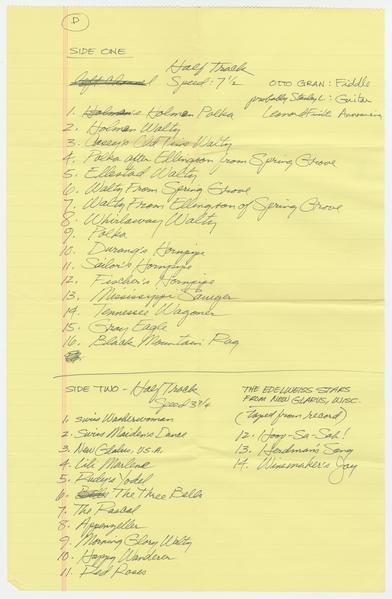 D
SIDE ONE
Half Track
Speed: 7 1/2
OTTO GRAN: Fiddle
probably Stanley L: Guitar
Leonard Finseth Announcing
1. Holman Polka
2. Holman Waltz
3. Old Time Waltz
4. Polka after Ellington from Spring Grove
5. Ellestad Waltz
6. Waltz From Spring Grove
7. Waltz From Ellington of Spring Grove
8. Whirlaway Waltz
9. Polka
10. Durang's Hornpipe
11. Sailor's Hornpipe
12. Fischer's Hornpipe
13. Mississippi Sawyer
14. Tennessee Wagoner
15. Gray Eagle
16. Black Mountain Rag
SIDE TWO - Half Track
Speed 3 3/4
THE EDELWEISS STARS
FROM NEW GLARUS, WISC.
(taped from record)
1. Swiss Wanderwoman
2. Swiss Maidens Dance
3. New Glarus, U.S.A.
4. Lili Marlene
5. Rudys Yodel
6. The Three Bells
7. The Rascal
8. Appenzeller
9. Morning Glory Waltz
10. Happy Wanderer
11. Red Roses
12. Hooy-Sa-Sah!
13. Herdman's Song
14. Winemaker's Joy